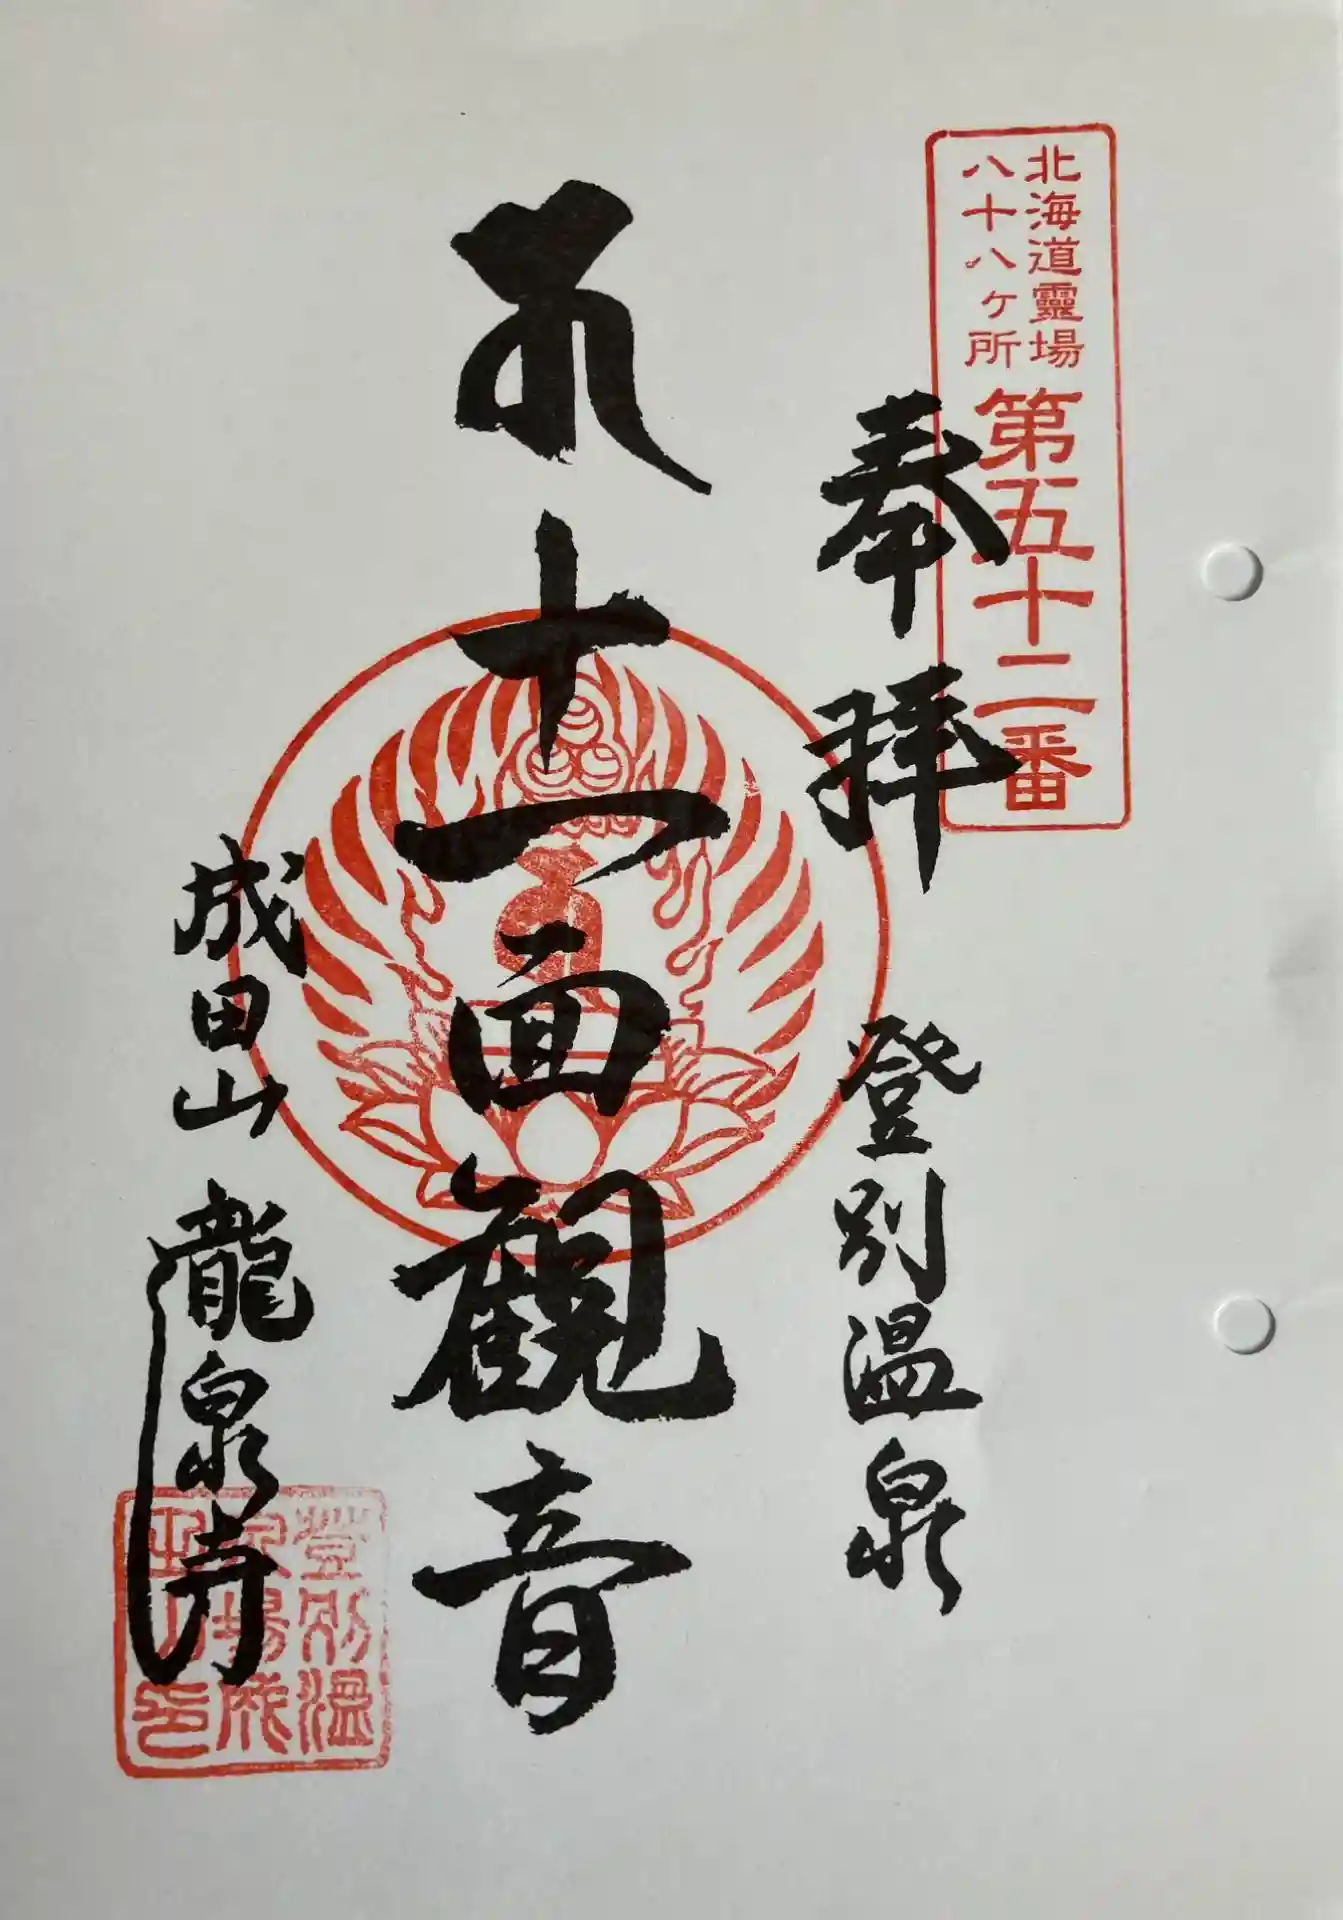 北海道靈場
八十八ヶ所
第五十二番
奉拝
登別温泉
十一面観音
成田山 龍泉寺